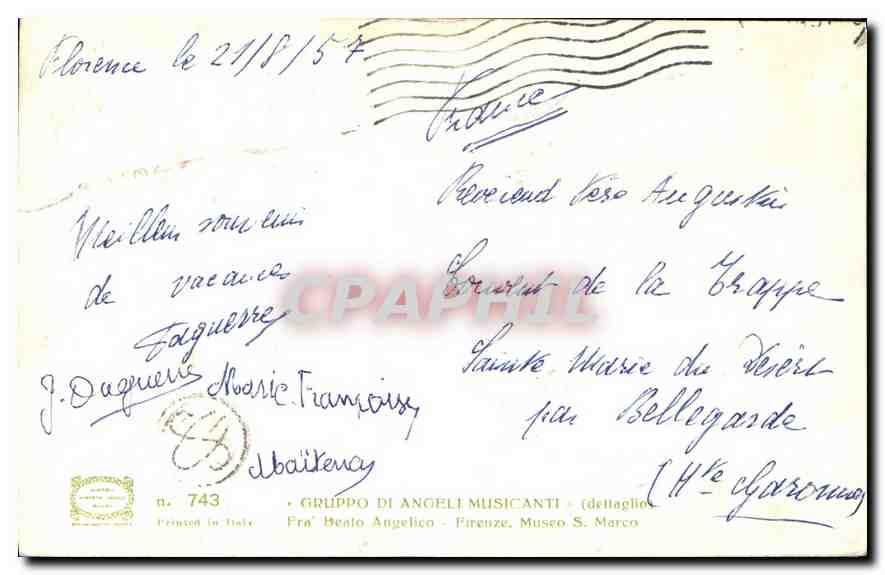 Florence le 21/8/57
France
Révérend Père Augustin
Couvent de la Trappe
Sainte Marie du Désert
par Bellegarde
(Hte Garonne)
Meilleur souvenir
de vacances
Daguerre
J. Daguerre Marie-Françoise
Maïtena
CPAPHIL
n. 743
Printed in Italy
• GRUPPO DI ANGELI MUSICANTI - (dettaglio)
Fra' Beato Angelico - Firenze, Museo S. Marco